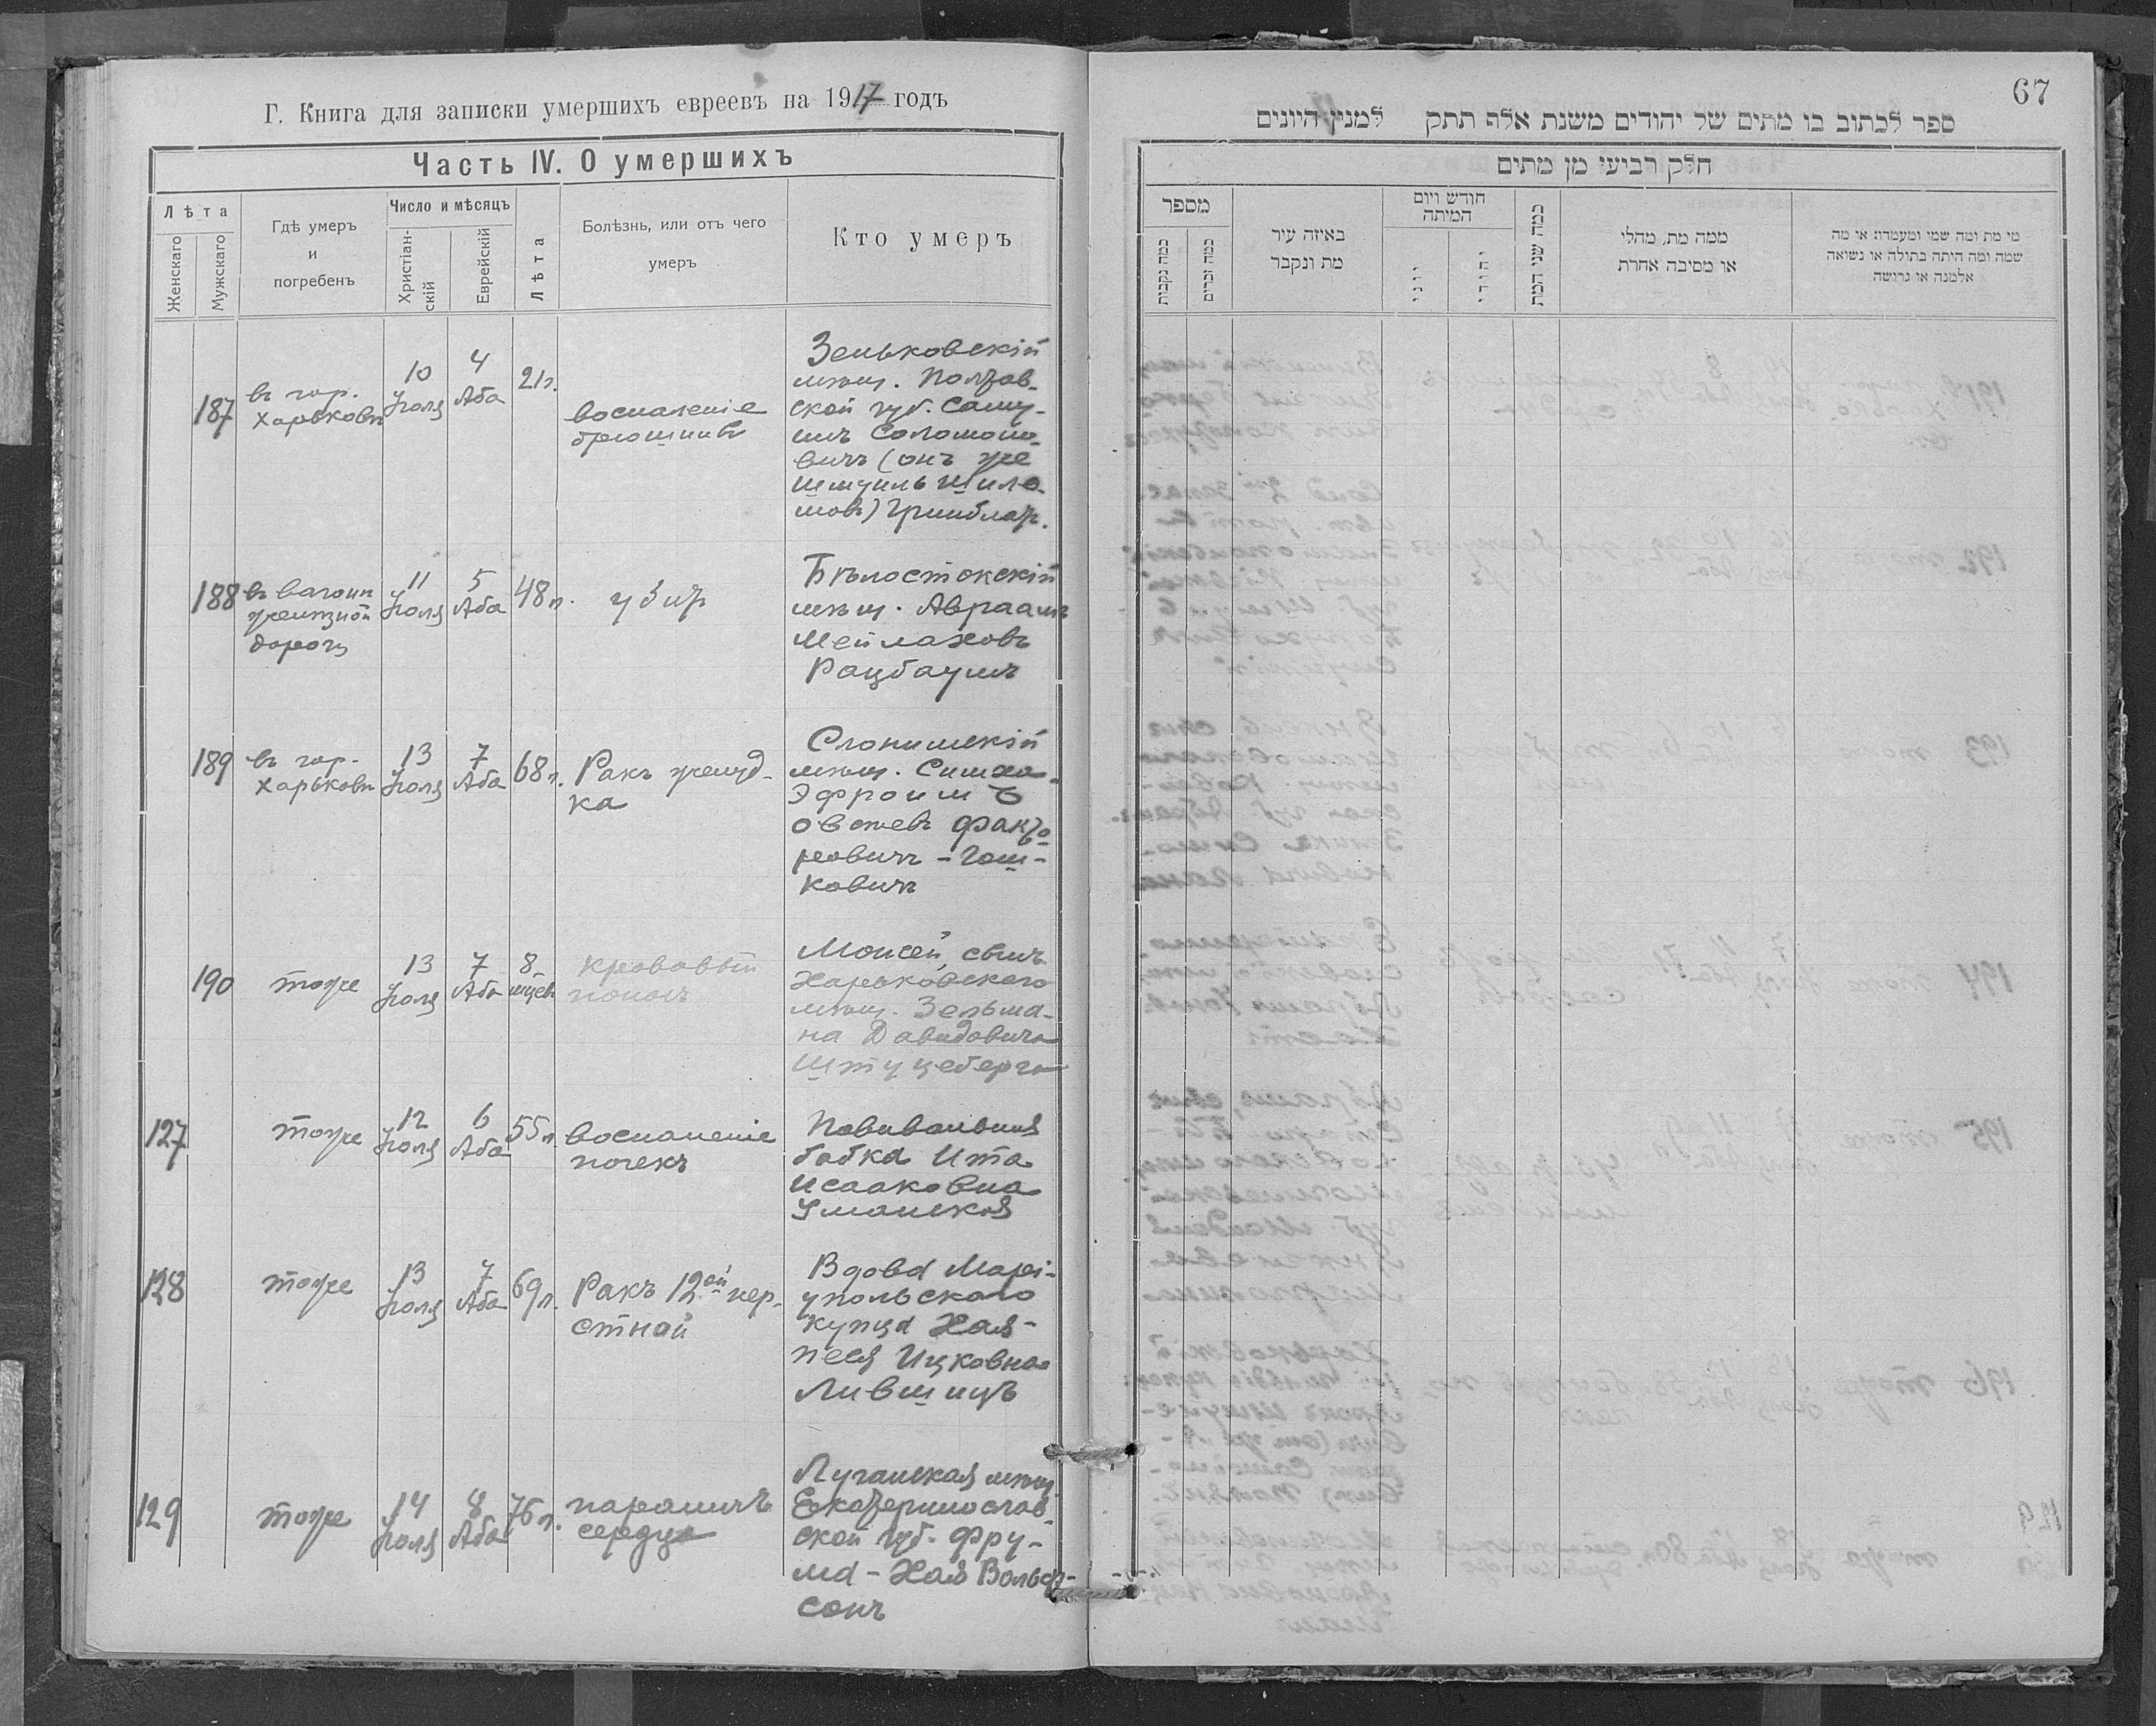 Г. Книга для записки умершихъ евреевъ на 1917 годъ
Часть IV. О умершихъ
Лѣта
Женскаго
Мужскаго
Гдѣ умеръ
и
погребенъ
Число и мѣсяцъ
Христіан-
скій
Еврейскій
Лѣта
Болѣзнь, или отъ чего
умеръ
Кто умеръ
187
въ гор.
Харьковѣ
10
Іюля
4
Аба
21 л.
воспаленіе
брюшины
Зеньковскій
мѣщ. Полтав-
ской губ. Саму-
илъ Соломоно-
вичъ (онъ же
Шмуилъ Шило-
мовъ) Гринблат.
188
въ вагонѣ
желѣзной
дороги
11
Іюля
5
Аба
48 л.
убит
Бѣлостокскій
мѣщ. Авраамъ
Мейлаховъ
Рацбаумъ
189
въ гор.
Харьковѣ
13
Іюля
7
Аба
68 л.
Ракъ желуд-
ка
Слонимскій
мѣщ. Симха-
Эфроимъ
Овсеевъ Факто-
ровичъ - Гош-
ковичъ
190
тоже
13
Іюля
7
Аба
8
мѣсяц.
Кровавый
поносъ
Моисей, сынъ
Харьковскаго
мѣщ. Зельма-
на Давидовича
Штуцеберга
127
тоже
12
Іюля
6
Аба
55 л.
воспаленіе
почекъ
Повивальная
бабка Ита
Исааковна
Уманская
128
тоже
13
Іюля
7
Аба
69 л.
Ракъ 12ой пер-
стной
Вдова Марі-
упольскаго
купца Хая-
Песя Ицковна
Лившицъ
129
тоже
14
Іюля
8
Аба
76 л.
параличъ
сердца
Луганская мѣщ.
Екатеринослав-
ской губ. Фру-
ма - Хая Вольф-
сонъ
67
ספר לכתוב בו מתים של יהודים משנת אלף תתק למנין היונים
חלק רביעי מן מתים
מספר
כמה נקבות
כמה זכרים
באיזה עיר
מת ונקבר
חודש ויום
המיתה
יוני
יהודי
כמה שני המת
ממה מת, מחלי
או מסיבה אחרת
מי מת ומה שמו ומעמדו: או מה
שמה ומה היתה בתולה או נשואה
אלמנה או גרושה